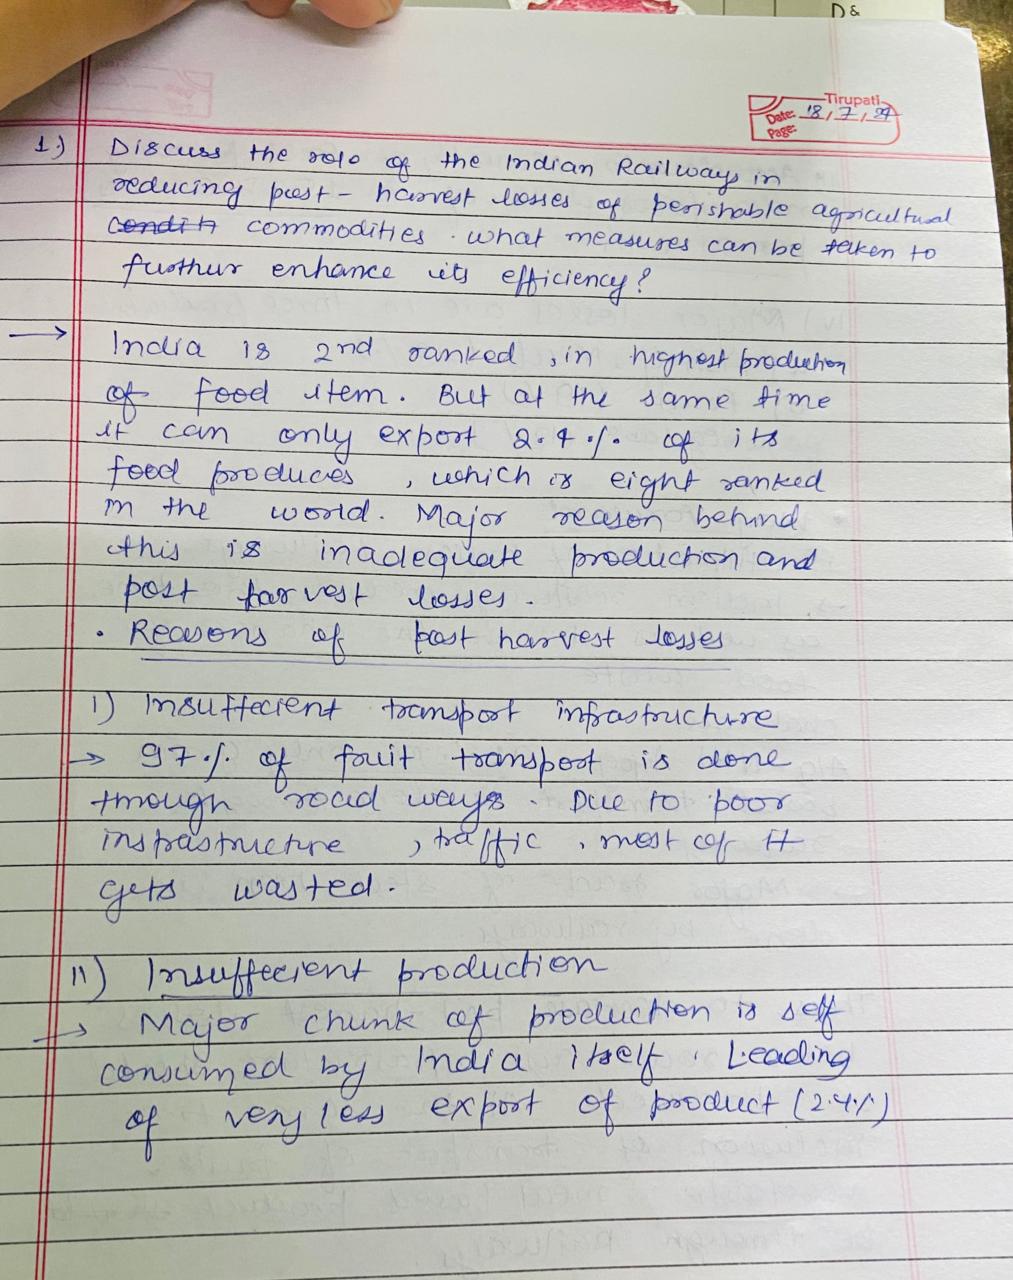 D &
Tirupati
Date: 18/7/24
Page:
1.) Discuss the role of the Indian Railways in
reducing post-harvest losses of perishable agricultural
condit commodities. what measures can be taken to
furthur enhance its efficiency?
→ India is 2nd ranked, in highest production
of food item. But at the same time
it can only export 2.4% of its
food produces, which is eight ranked
in the world. Major reason behind
this is inadequate production and
post farvest losses.
• Reasons of post harvest losses
I) Insuffecient transport infrastructure
→ 97% of fruit transport is done
through road ways. Due to poor
instrastructure, traffic, most of it
gets wasted.
II) Insuffecient production
→ Major chunk of production is self
consumed by India itself. Leading
of very less export of product (2.4%)